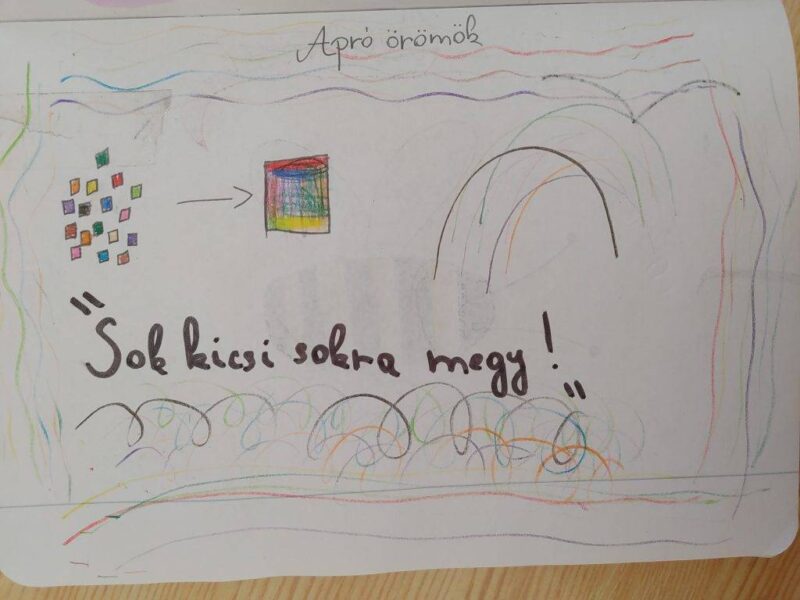 Apró örömök
"Sok kicsi sokra megy!"